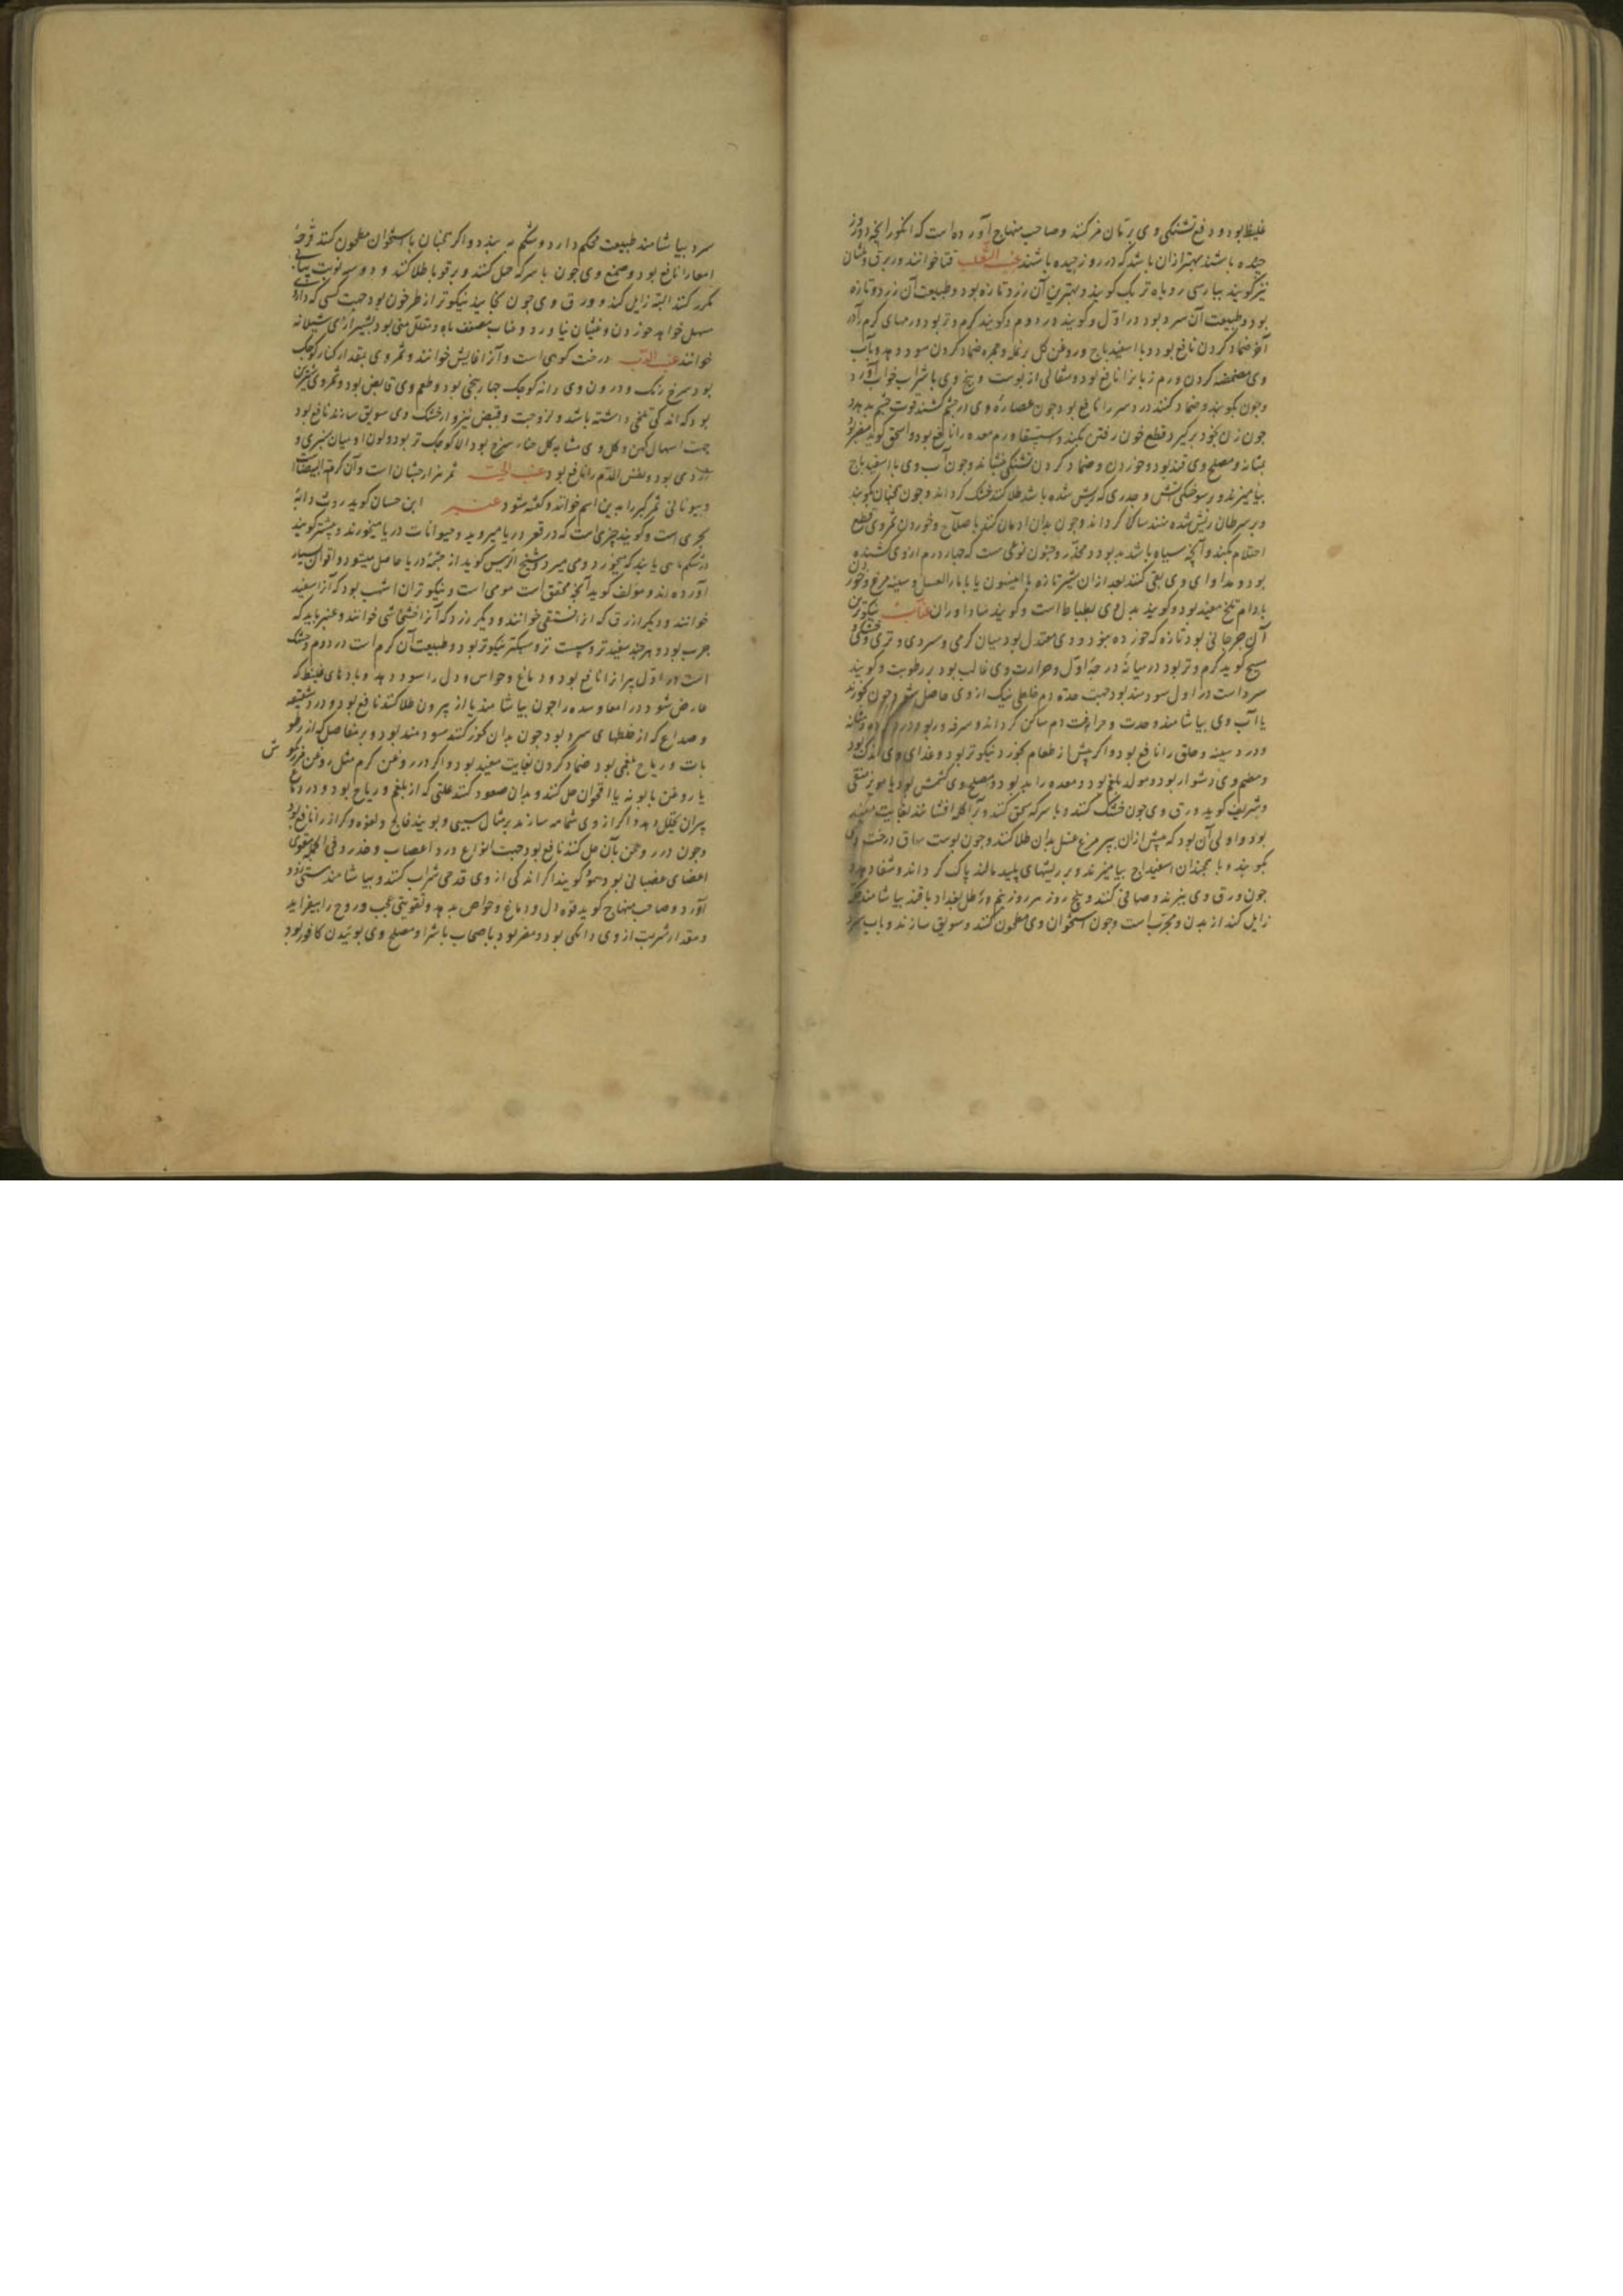 غلیظ بود و دفع تشنگی وی برمان مز کنند وصاحب منهاج آورده است که انکور انچه دو روز
چیده باشند بهتر ازان باشد که در روز چیده باشند عنب الثعلب فنا خوانند و ربرق
نیز کویند بپارسی روباه تربک کویند و بهترین آن زرد تازه بود و طبیعت آن زرد و تازه
بود و طبیعت آن سرد بود در اول و کویند در دوم و کویند کرم و تر بود ورمهای کرم را در
آخر ضماد کردن نافع بود و با اسفیداج و روغن کل بر نمله و حمره ضماد کردن سود دهد و بآب
وی مضمضه کردن ورم زبانرا نافع بود و مثقالی از پوست و بیخ وی با شراب خواب آورد
وچون بکوبند وضماد کنند درد سر را نافع بود چون عصاره وی در چشم کشند قوت چشم بدهد
چون زن بخود برکیرد قطع خون رفتن بکند و استسقا و ورم معده را نافع بود و اسحق کوید مضر بود
بمثانه و مصلح وی قند بود و خوردن و ضماد کردن تشنکی بنشاند و چون آب وی با اسفیداج
بیامیزند و بر سوختکی آتش و جدری که ریش شده باشد طلا کنند خشک کرداند و چون همچنان بکوبند
و بر سرطان ریش شده نهند ساکن کرداند و چون بدان ادمان کنند باصلاح و خوردن ثمر وی قطع
احتلام بکند و آنچه سیاه باشد بد بود و مخدر و جنون نوعی ست که چهار درم از وی کشنده
بود و مداوای وی بقی کنند بعد ازان شیر تازه با انیسون یا با ماء العسل و سینه مرغ و خوردن
بادام تلخ مفید بود و کویند بدل وی بطباط است و کویند عناب نیکوترین
آن جرجانی بود تازه که خورده بود و وی معتدل بود میان کرمی و سردی و تری و خشکی و
مسیح کوید کرم و تر بود در میانه درجه اول و حرارت وی غالب بود بر رطوبت و کویند
سرد است در اول سودمند بود جهت حدت دم خلطی نیک از وی حاصل شود چون بخورند
یا آب وی بیاشامند و حدت و حرافت دم ساکن کرداند و سرفه و ربو و درد کرده و مثانه
و درد سینه و حلق را نافع بود و اکر پیش از طعام بخورد نیکوتر بود و غذای وی اندک بود
و هضم وی دشوار بود و مولد بلغم بود و معده را بد بود و مصلح وی کشمش بود یا مویز منقی
وشریف کوید ورق وی چون خشک کنند و با سرکه سحق کنند و بر آکله افشانند بغایت مفید
بود و اولی آن بود که پیش ازان بپر مرغ عسل بدان طلا کنند و چون پوست ساق درخت وی
بکوبند و با همچندان اسفیداج بیامیزند و بر ریشهای پلید مالند پاک کرداند و شفا دهد و
چون ورق وی بپزند و صافی کنند و پنج روز هر روز نیم رطل بغداد با قند بیاشامند
زایل کند از بدن و مجرب است و چون استخوان وی مطحون کنند و سویق سازند و باب سرد
سرد بیاشامند طبیعت محکم دارد و شکم به بندد و اکر همچنان با استخوان مطحون کنند قرحه
امعا را نافع بود و صمغ وی چون با سرکه حل کنند و بر قوبا طلا کنند و دو سه نوبت پیاپی
مکرر کنند البته زایل کند و ورق وی چون بخایند نیکوتر از طرخون بود جهت کسی که داروی
مسهل خواهد خوردن و غثیان نیاورد و عناب مضعف باه و مقلل منی بود بشیرازی شیلانه
خوانند عنب الدب درخت کوهی است و آنرا خوانند و ثمر وی بمقدار کنار کوچک
بود سرخ رنک و درون وی دانه کوچک چهار پنج بود و طعم وی قابض بود و ثمر وی شیرین
بود که اندکی تلخی داشته باشد و لزوجت و قبض نیز و از خشک وی سویق سازند نافع بود
جهت اسهال کهن و کل وی مشابه کل حنا سرخ بود الا کوچک تر بود و لون او میان سبزی و
زردی بود و نفث الدم را نافع بود عنب الحیه ثمر هزارجشان است و آن کرمة البیضاست
و بیونانی ثمر کبر را بدین اسم خوانند و کفته شود عنبر ابن حسان کوید روث دابهٔ
بحری است و کویند چیزی است که در قعر دریا میروید و حیوانات دریا میخورند و بیشتر کویند
در شکم ماهی یابند که میخورد و می میرد و شیخ الرئیس کوید از چشمهٔ دریا حاصل میشود و اقوال بسیار
آورده اند و مولف کوید آنچه محقق است مومی است و نیکوتران اشهب بود که آنرا سفید
خوانند و دیکر ازرق که از فستقی خوانند و دیکر زرد که آنرا خشخاشی خوانند و عنبر باید که
چرب بود و هر چند سفیدتر و پست تر و سبکتر نیکوتر بود و طبیعت آن کرم است در دوم و خشک
است در اول پیرانرا نافع بود و دماغ و حواس و دل را سود دهد و بادهای غلیظ که
عارض شود در امعا و سده را چون بیاشامند یا از بیرون طلا کنند نافع بود و درد شقیقه
و صداع که از خلطهای سرد بود چون بدان بخور کنند سودمند بود و بر مفاصل که از رطو
بات و ریاح بلغمی بود ضماد کردن بغایت مفید بود و اکر در روغن کرم مثل روغن مرزنکو ش
یا روغن بابونه یا اقحوان حل کنند و بدان صعود کنند علتی که از بلغم و ریاح بود و در دماغ
پیران تحلیل دهد و اکر از وی شمامه سازند بر مثال سیبی و بویند فالج و لقوه و کزاز را نافع بود
و چون در روغن بان حل کنند نافع بود جهت انواع درد اعصاب و خدر و فی الجمله مقوی
اعضای عضبانی بود همو کویند اکر اندکی از وی قدحی شراب کنند و بیاشامند مستی زود
آورد و صاحب منهاج کوید قوه دل و دماغ و حواص بدهد و تقویتی عجب و روح را بیفزاید
و مقدار شربت از وی دانکی بود و مضر بود باصحاب باشرا و مصلح وی بوئیدن کافور بود